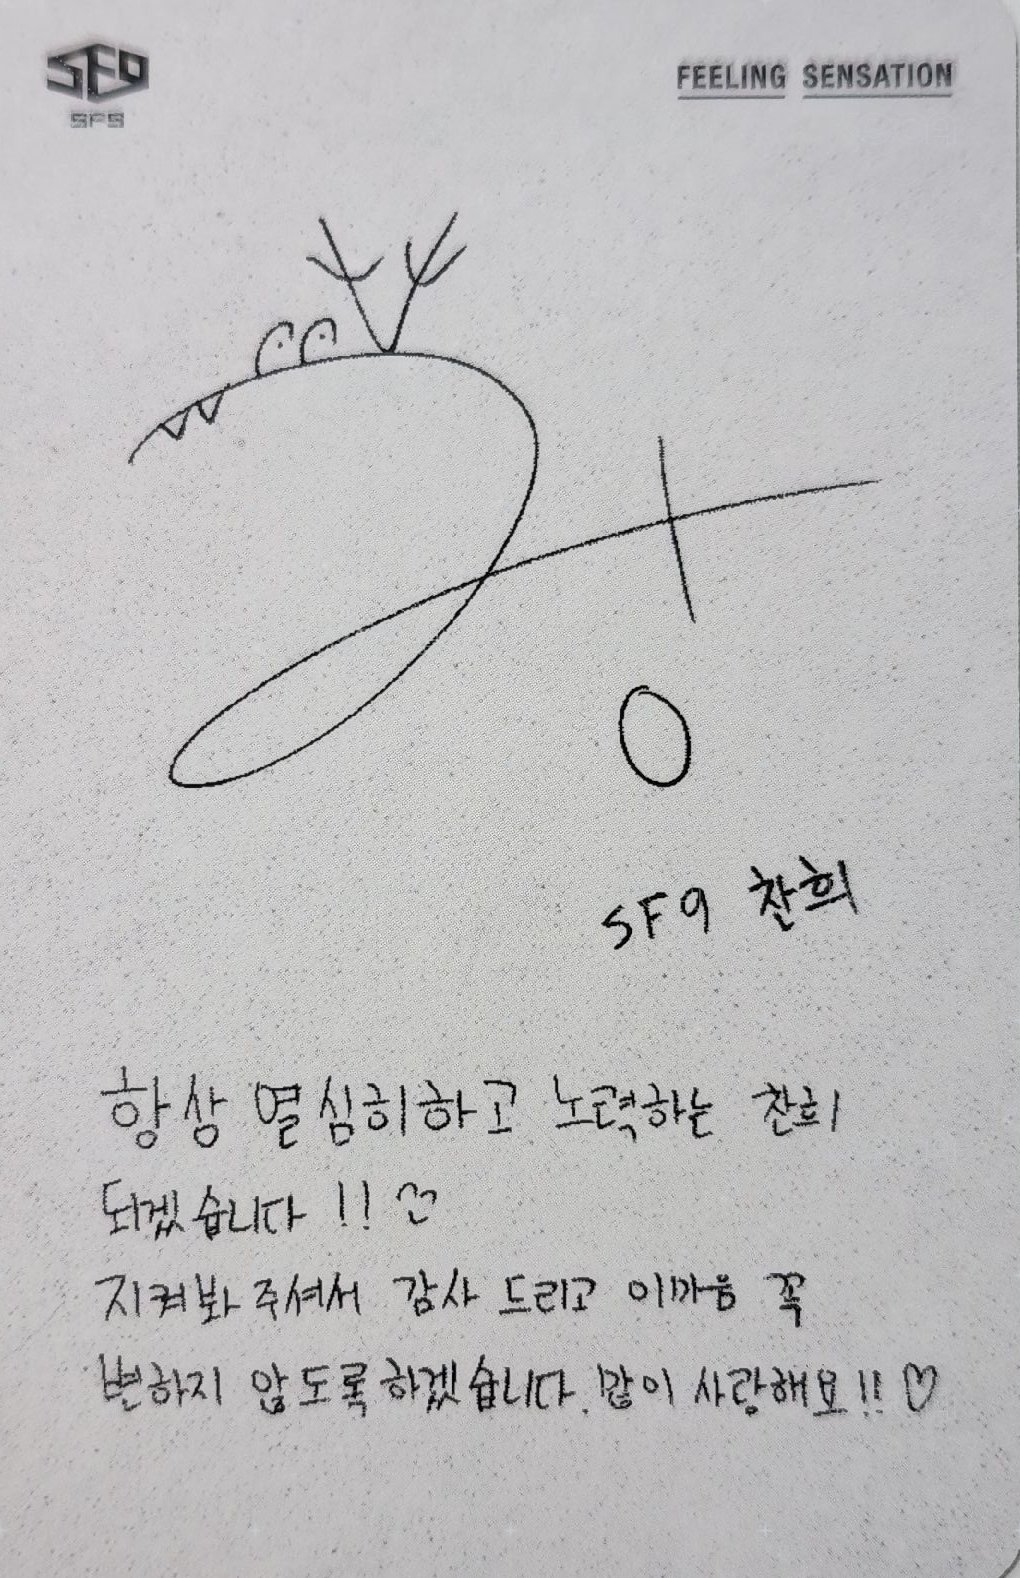 SF9
SF9
FEELING SENSATION
강
SF9 찬희
항상 열심히하고 노력하는 찬희
되겠습니다 !!
지켜봐주셔서 감사 드리고 이마음 꼭
변하지 않도록하겠습니다. 많이 사랑해요!! ♡